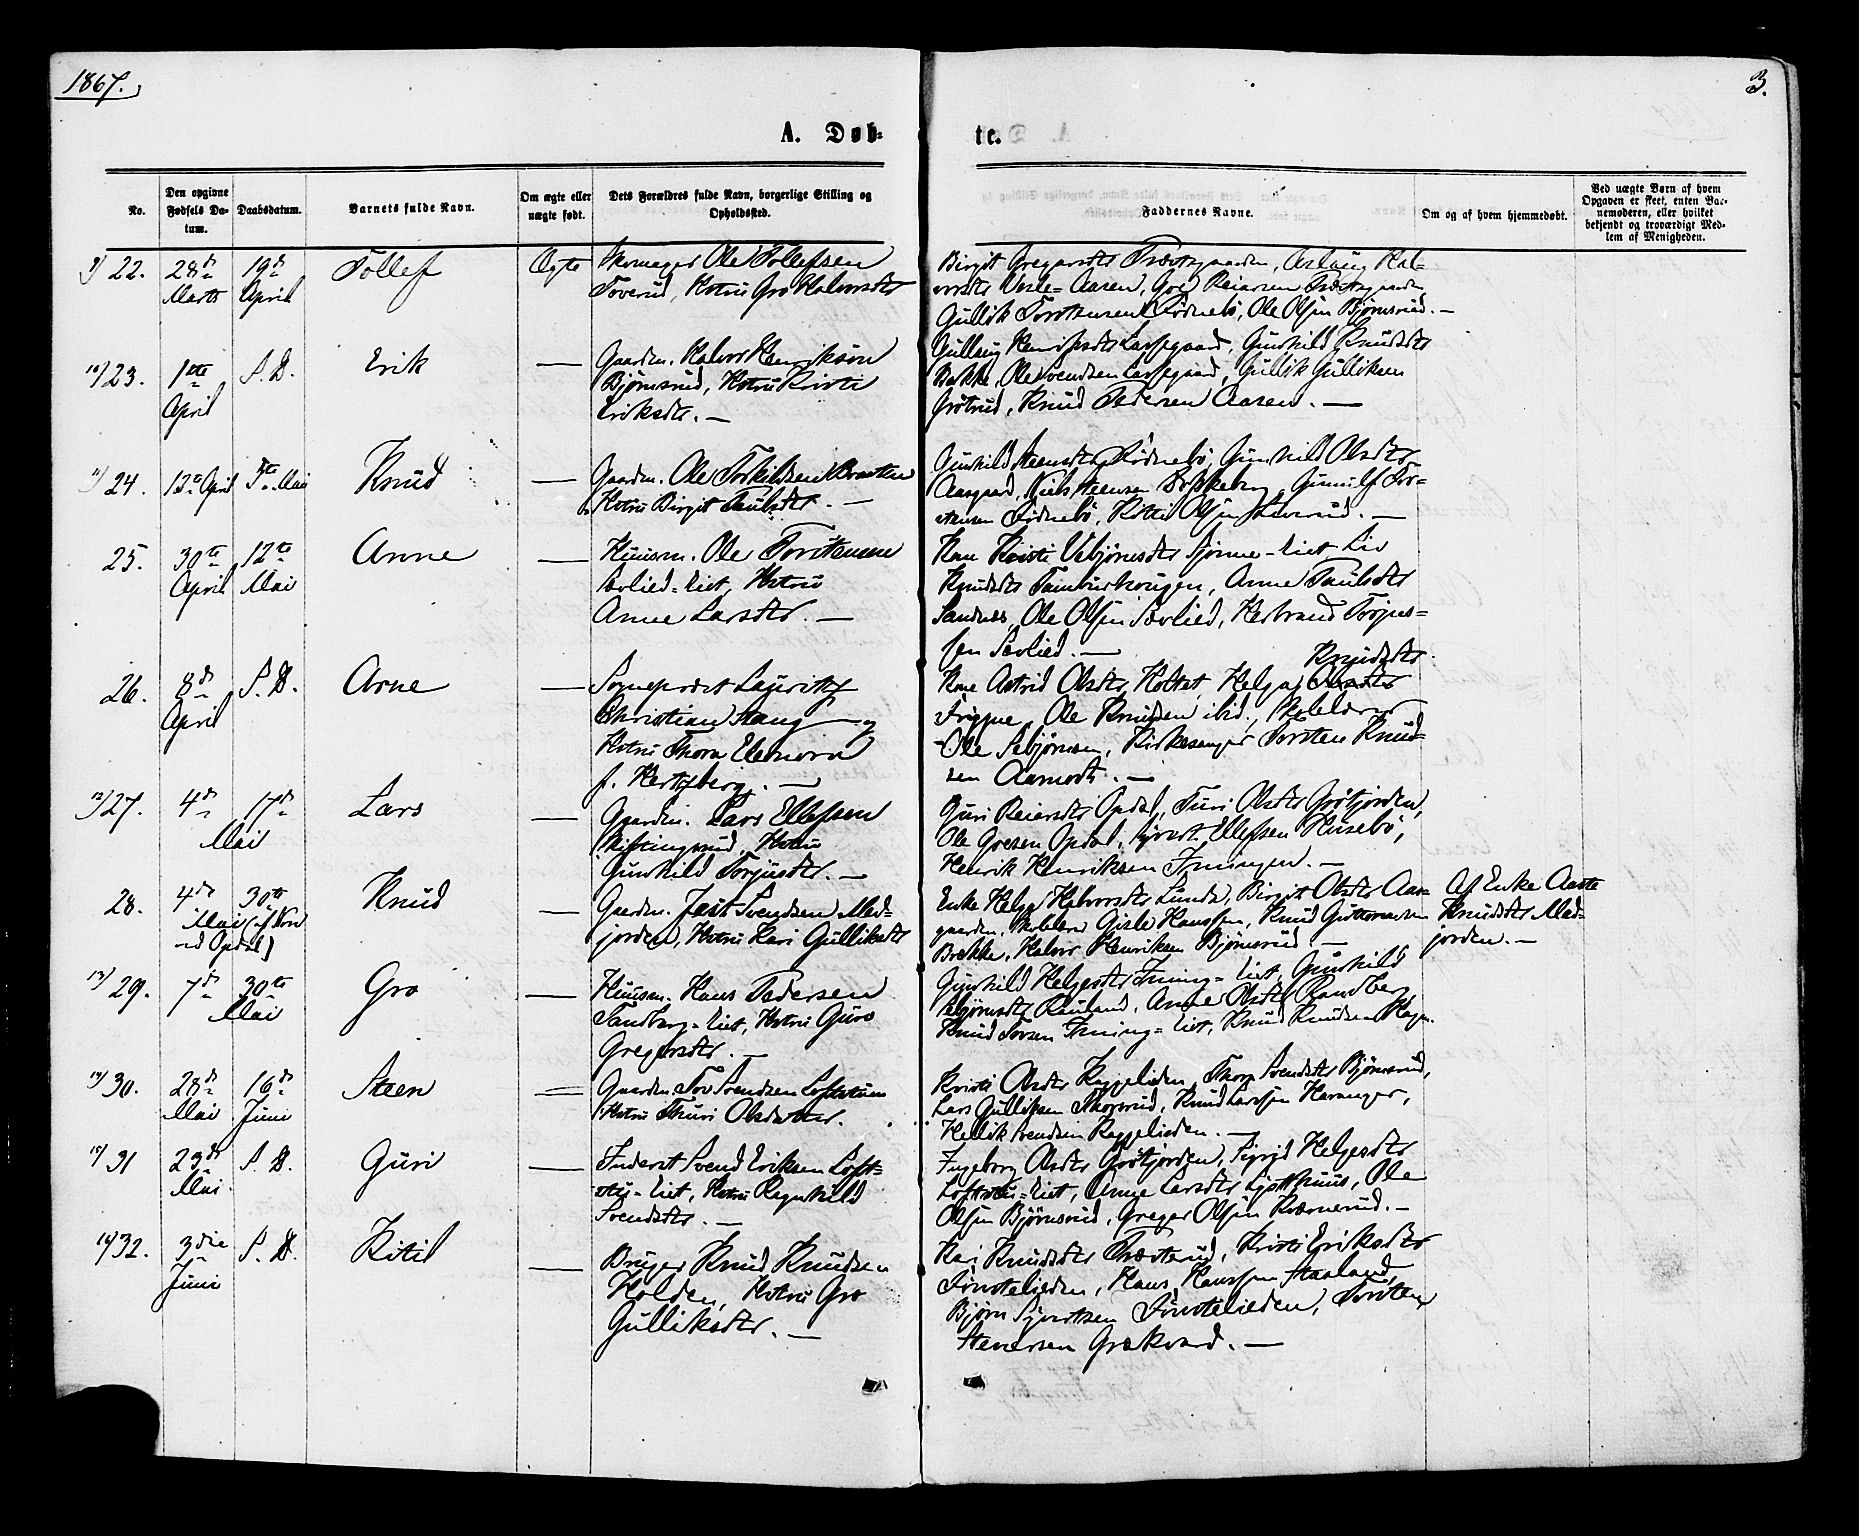 1867.
3.
A. Døb-
te.
No.
Den opgivne Fødsels Datum.
Daabsdatum.
Barnets fulde Navn.
Om ægte eller uægte født.
Dets Forældres fulde Navn, borgerlige Stilling og Opholdssted.
Faddernes Navne.
Om og af hvem hjemmedøbt.
Ved uægte Børn af hvem Opgaven er skeet, enten Barnemoderen, eller hvilket bekjendt og troværdigt Medlem af Menigheden.
9/ 22. 28d Marts 19d April Tollef Ægte
Skomager Ole Tollefsen
Toverud, Hstru Gro Halvorsdtr
Birgit Gregarsdtr, Aslaug Hal-
vorsdtr Vesle-Aasen, Goe Reiersen
Gullik Torstensen Rødnebö, Ole Olsen Björnsrud. —
10/ 23. 1ste April S. D. Erik —
Gaardm. Halvor Henriksen
Björnsrud, Hstru Kirsti
Eriksdtr. —
Gullaug Henriksdtr Larsegaard, Gunhild Knudsdtr
Bakke, Ole Svendsen Larsegaard, Gullik Gulliksen
Grötrud, Knud Pedersen Aasen. —
11/ 24. 13de April 5te Mai Knud —
Gaardm. Ole Torkildsen Braaten
Hstru Birgit Paulsdtr. —
Gunhild Steensdtr Rödnebö, Gunhild Olsdtr
Aasgaard, Niels Steensen, Gunulf Tor-
stensen Rödnebö, Kittil Olsen. —
25. 30te April 12te Mai Anne —
Huusm. Ole Torstensen
Sevlied-Eiet, Hstru
Anne Larsdtr. —
Kone Kristi Vebjörnsdtr-Eiet, Liv
Knudsdtr Tamburhougen, Anne Paulsdtr
Sandnæs, Ole Olsen Sævlied, Herbrand Torjus-
sen Sevlied. —
26. 8d April S. D. Arne —
Sogneprest Lauritz
Christian Stang og
Hstru Thora Eleonora
f. Hertzberg. —
Kone Astrid Olsdtr Holtet, Helga Knudsdtr
Frygne, Ole Knudsen ibid., Skolelærer
Ole Sebjörnsen, Kirkesanger Torsten Knud-
sen Aamodt. —
12/ 27. 4d 17d Mai Lars —
Gaardm. Lars Ellefsen
Skiftingsrud, Hstru
Gunhild Torjusdtr. —
Guri Reiersdtr Opdal, Turi Olsdtr Grötjorden,
Ole Goesen Opdal, Syvert Ellefsen Huusebö,
Henrik Henriksen Fruingen. —
28. 4de 30te Mai (i Nore ved Opdal) Knud —
Gaardm. Jøst Svendsen Med-
jorden, Hstru Kari Gulliksdtr
Enke Helga Halvorsdtr Lunde, Birgit Olsdtr Aas-
gaarden, Skolelærer Gisle Hansen, Knud Guttormsen
Brekke, Halvor Henriksen Björnsrud. —
Af Enke Aaste
Knudsdtr Med-
jorden. —
13/ 29. 7d 30te Mai Gro —
Huusm. Hans Pedersen
Sandberg-Eiet, Hstru Guro
Gregersdtr. —
Gunhild Helgesdtr Fruing-Eiet, Gunhild
Sebjörnsdtr Rauland, Anne Olsdtr Sandberg
Knud Torsen Fruing-Eiet, Knud Knudsen
14/ 30. 28d Mai 16d Juni Steen =
Gaardm. Tov Svendsen Loftstuen
Hstru Thuri Olsdatter.
Kristi Olsdtr Roggelieden, Thora Svendsdtr Björnsrud,
Lars Gulliksen Skogsrud, Knud Larssen Haranger,
Hellik Svendsen Roggelieden. —
15/ 31 23d Mai. S. D. Guri —
Inderst Svend Eriksen Loft-
stu-Eiet, Hstru Ragnhild
Svendsdtr. —
Ingeborg Olsdtr Grötjorden, Sigrid Helgesdtr
Loftstu-Eiet, Anne Larsdtr Gjetthuus, Ole
Olsen Björnsrud, Greger Olsen Kværnerud. —
16/ 32. 3die Juni S. D. Kitil —
Bruger Knud Knudsen
Holden, Hstru Gro
Gulliksdtr. —
Kari Knudsdtr Prestrud, Kristi Eriksdtr
Fönstelieden, Hans Hanssen Staaland,
Björn Syvertsen Fönstelieden, Torsten
Stenersen Grækvard. —